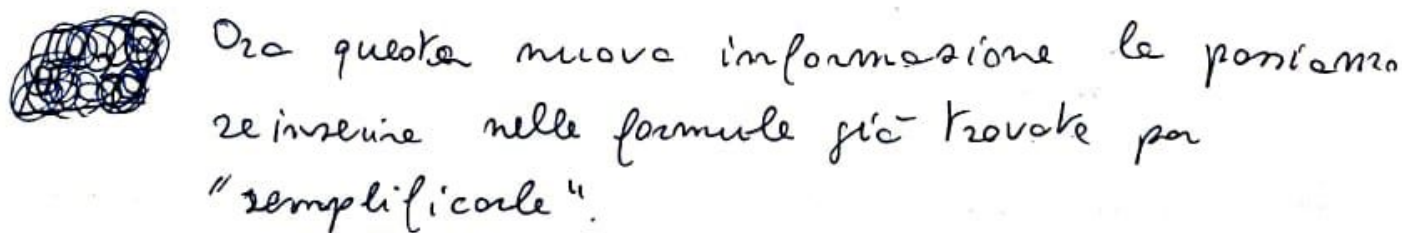 Ora questa nuova informazione la possiamo
reinserire nelle formule già trovate per
"semplificarle".